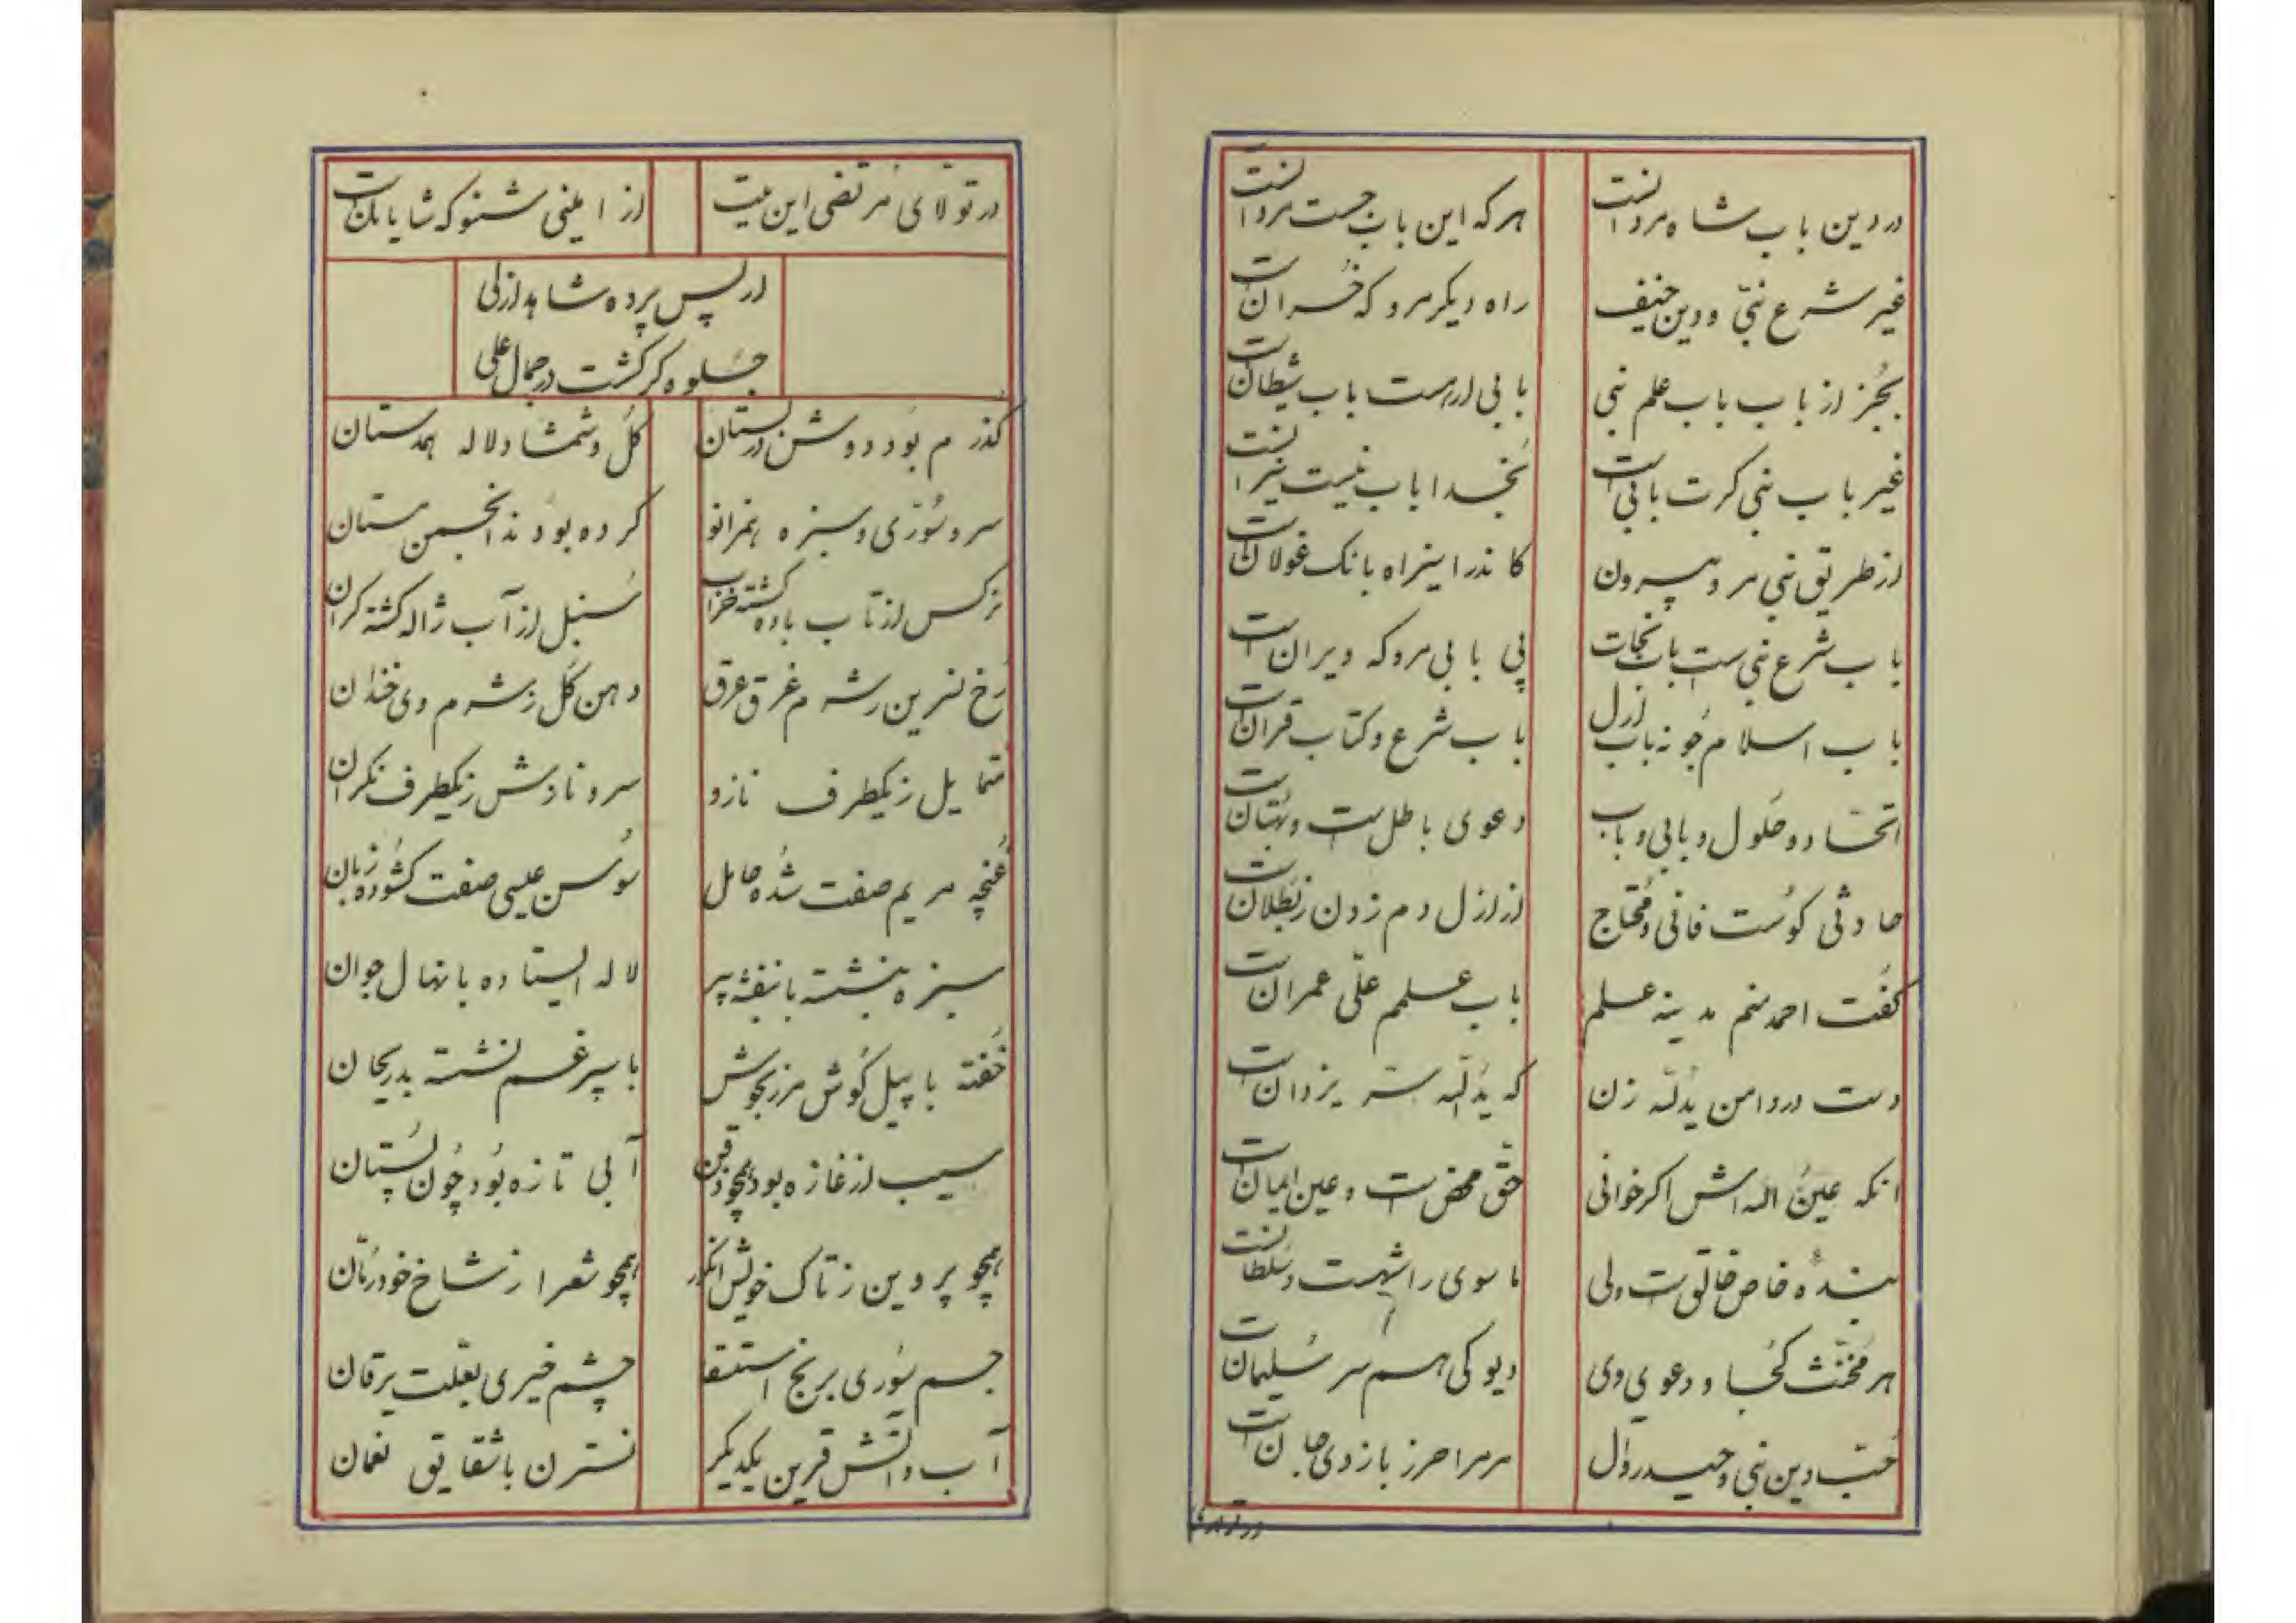 در دین باب شاه مردانست هر که این باب جست مرد آنست
غیر شرع نبیّ و دین حنیف راه دیگر مرو که خُسرانست
بجُز از باب باب علم نبی بابی ار هست باب شیطانست
غیر باب نبی کرت بابی است بخدا باب نیست نیرانست
از طریق نبی مرو بیرون کاندر اینراه بانک غولانست
باب شرع نبی ست باب نجات پی بابی مرو که ویرانست
باب اسلام جُو نه باب ازل باب شرع و کتاب قرانست
اتحاد و حلول و بابی و باب دعوی باطل ست و بهتانست
حادثی کوست فانی و محتاج از ازل دم زدن ز بُطلانست
کفت احمد منم مدینه علم باب علمم علّی عمرانست
دست در دامن یدُاللّه زن که یدُاللّه سرّ یزدانست
انکه عینُ اللّه اش اکر خوانی حقّ محض ست و عین ایمانست
بندهٔ خاص خالق ست ولی ما سوی را شه ست و سُلطانست
هر مخنّث کُجا و دعوی وی دیو کی همسر سُلیمانست
حُبّ دین نبی و حیدر و آل مر مرا حرز بازوی جانست
در تولای
در تولّای مرتضی این بیت از امینی شنو که شایانست
از پس پرده شاهد ازلی
جلوه کر کشت در جمال علی
کذرم بُود دوش در بستان کُل و شمشاد لاله همدستان
سرو سُوری و سبزه همزانو کرده بودند انجمن ستان
نرکس از تاب باده کشته خراب سُنبل از آب ژاله کشته کران
رُخ نسرین ز شرم غرق عرق دهن کُل ز شرم وی خندان
متمایل ز یکطرف نازو سرو نازش ز یکطرف نکران
غُنچه مریم صفت شُده حامل سُوسن عیسی صفت کشُوده زبان
سبزه بنشسته با بنفشه پیر لاله ایستاده با نهال جوان
خُفته با پیل کُوش مرزنجوش با سپرغم نشسته بد ریحان
سیب از غازه بود همچو ذقن آبی تازه بُود چُون پُستان
همچو پروین ز تاک خویش انکور همچو شعرا ز شاخ خود رُمّان
جسم سُوری برنج استسقا چشم خیری بعلّت یرقان
آب و آتش قرین یکدیکر نسترن با شقایق نعمان